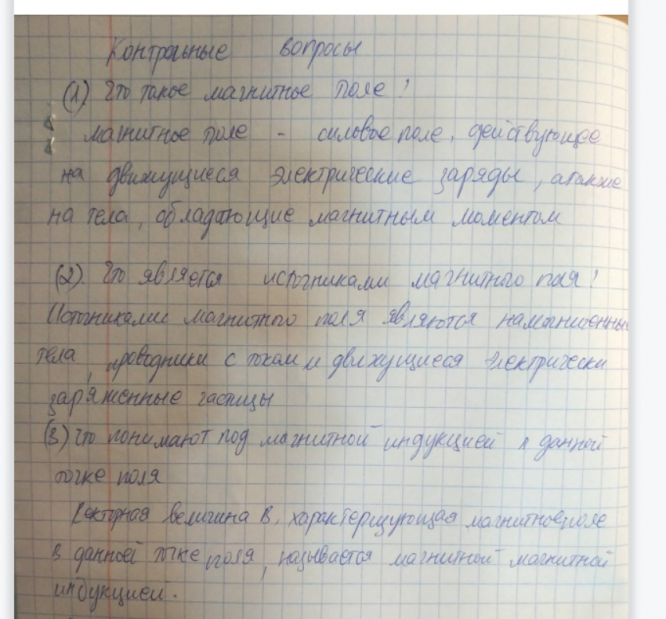 Контрольные вопросы
(1) Что такое магнитное поле?
магнитное поле - силовое поле, действующее
на движущиеся электрические заряды, а также
на тела, обладающие магнитным моментом
(2). Что является источниками магнитного поля?
Источниками магнитного поля являются намагниченные
тела, проводники с током и движущиеся электрически
заряженные частицы
(3) Что понимают под магнитной индукцией в данной
точке поля
Векторная величина B, характеризующая магнитное поле
в данной точке поля, называется магнитной магнитной
индукцией.